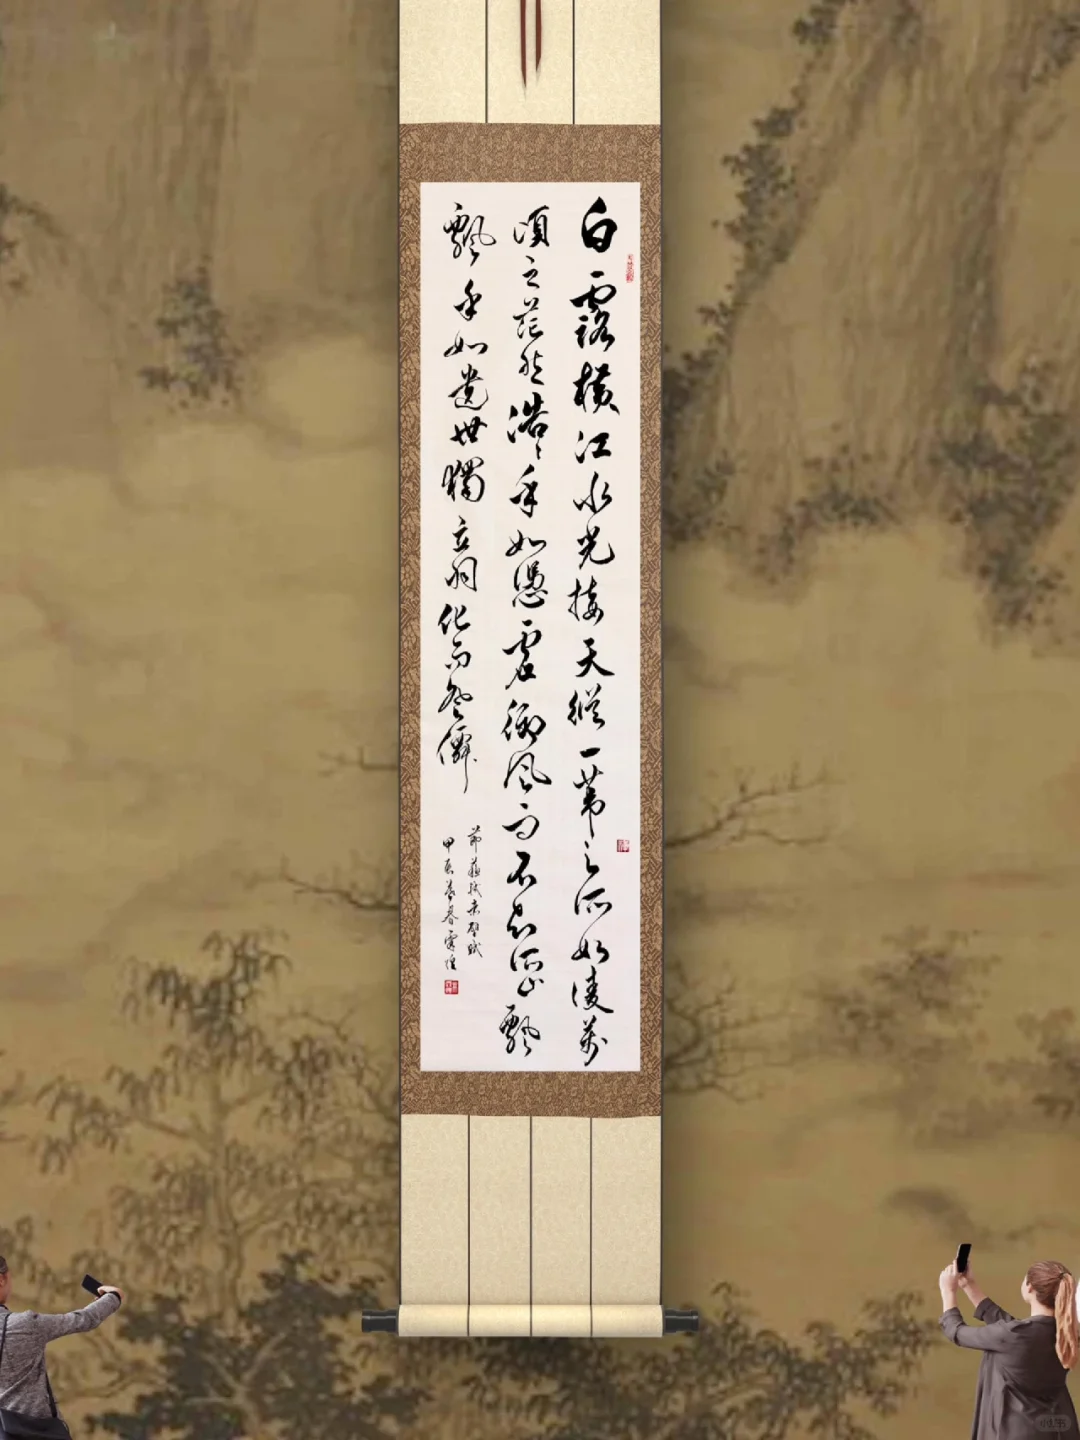 白露横江水光接天縱一葦之所如凌萬
頃之茫然浩々乎如憑虛御風而不知所止飄
飄乎如遺世獨立羽化而登僊
節蘇軾赤壁賦
甲辰暮春雲煌